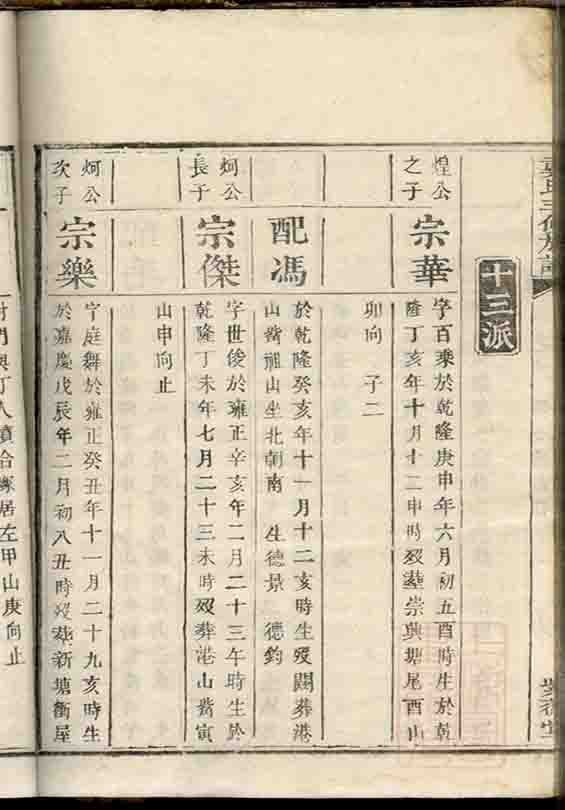 十三派
煌公
之子
宗華
字百乘於乾隆庚申年六月初五酉時生於乾
隆丁亥年十月十二申時歿葬崇與塘尾酉山
卯向 子二
配馮
於乾隆癸亥年十一月十二亥時生歿闕葬港
山嘴祖山坐北朝南 生德景 德鈞
炯公
長子
宗傑
字世俊於雍正辛亥年二月二十三午時生於
乾隆丁未年七月二十三未時歿葬港山嘴寅
山申向止
炯公
次子
宗樂
字庭舞於雍正癸丑年十一月二十九亥時生
於嘉慶戊辰年二月初八丑時歿葬新塘衝屋
居左甲山庚向止